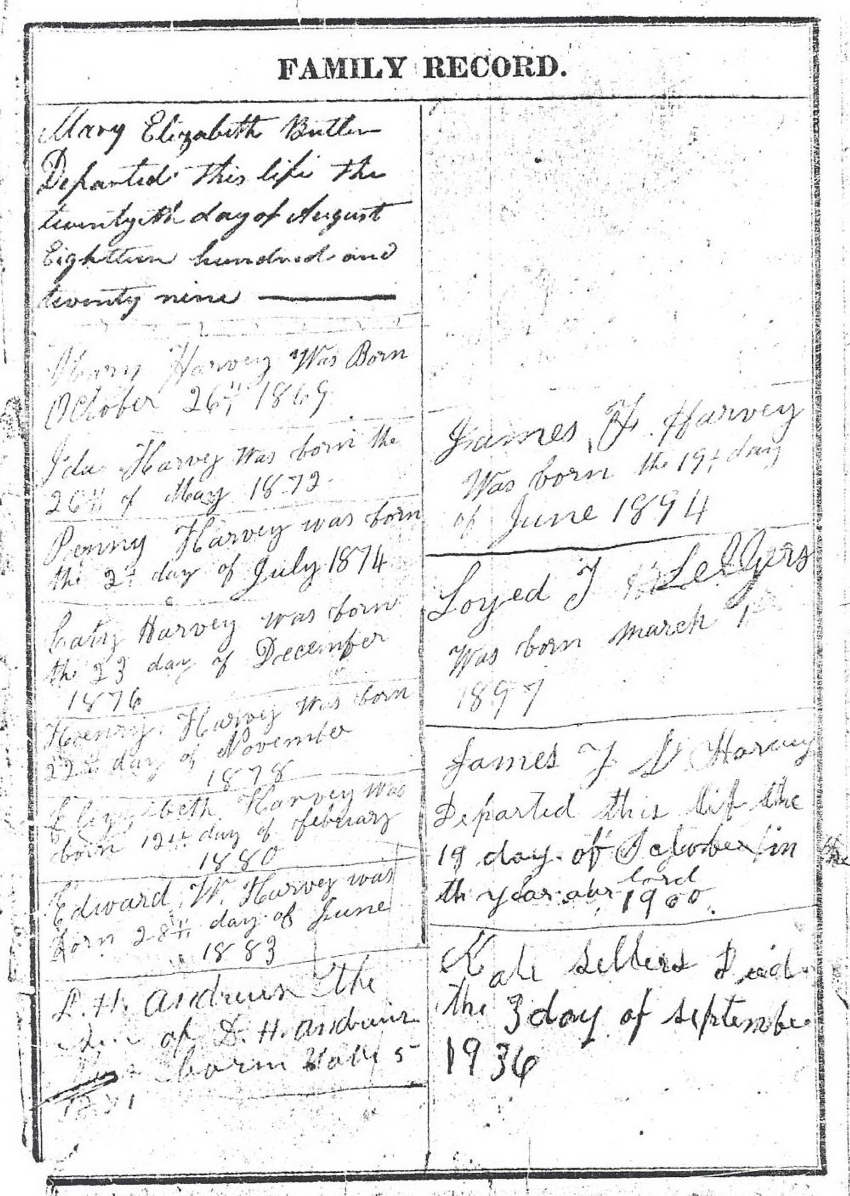 FAMILY RECORD.
Mary Elizabeth Butler
Departed this life the
twentyeth day of August
Eighteen hundred and
twenty nine
Mary Harvey Was Born
October 26th 1869
Ida Harvey Was born the
26th of May 1872
Penny Harvey was born
the 2d day of July 1874
Caty Harvey was born
the 23 day of December
1876
Henry Harvey Was born
22d day of November
1878
Elizabeth Harvey was
born 12th day of february
1880
Edward W. Harvey was
born 28th day of June
1883
H. Andrews the
of D. H. Andrews
born
James F. Harvey
Was born the 19th day
of June 1894
Loyed J
Was born march 1
1897
James Harvey
Departed this lif the
19 day of October in
th year our lord
1900.
Kate Sellers Died
the 3 day of Septembe
1936